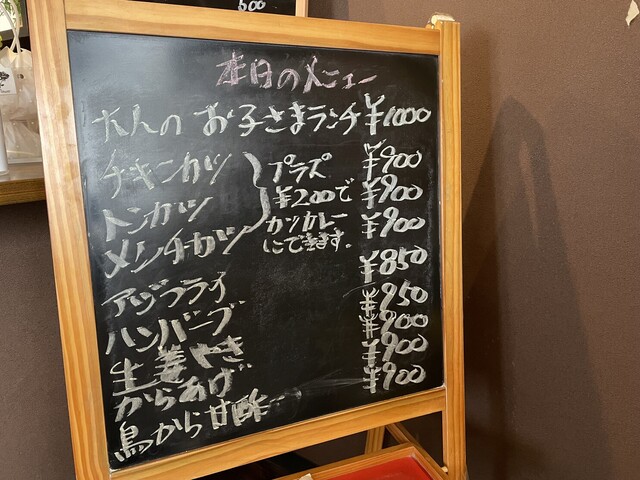 600
本日のメニュー
大人の お子さまランチ ¥1000
チキンカツ ¥900
トンカツ ¥900
メンチカツ ¥900
プラズ
¥200で
カツカレー
にできます。
アジフライ ¥850
ハンバーグ ¥950
生姜やき ¥900
からあげ ¥900
鳥から甘酢 ¥900